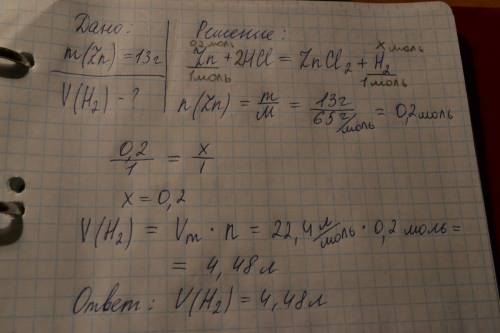 Дано:
m(Zn)=13г
V(H₂) - ?
Решение:
0,2 моль x моль
Zn + 2HCl = ZnCl₂ + H₂
1 моль 1 моль
n(Zn) = m/M = 13г/65г/моль = 0,2 моль
0,2/1 = x/1
x = 0,2
V(H₂) = Vm · n = 22,4 л/моль · 0,2 моль =
= 4,48 л
Ответ: V(H₂) = 4,48 л